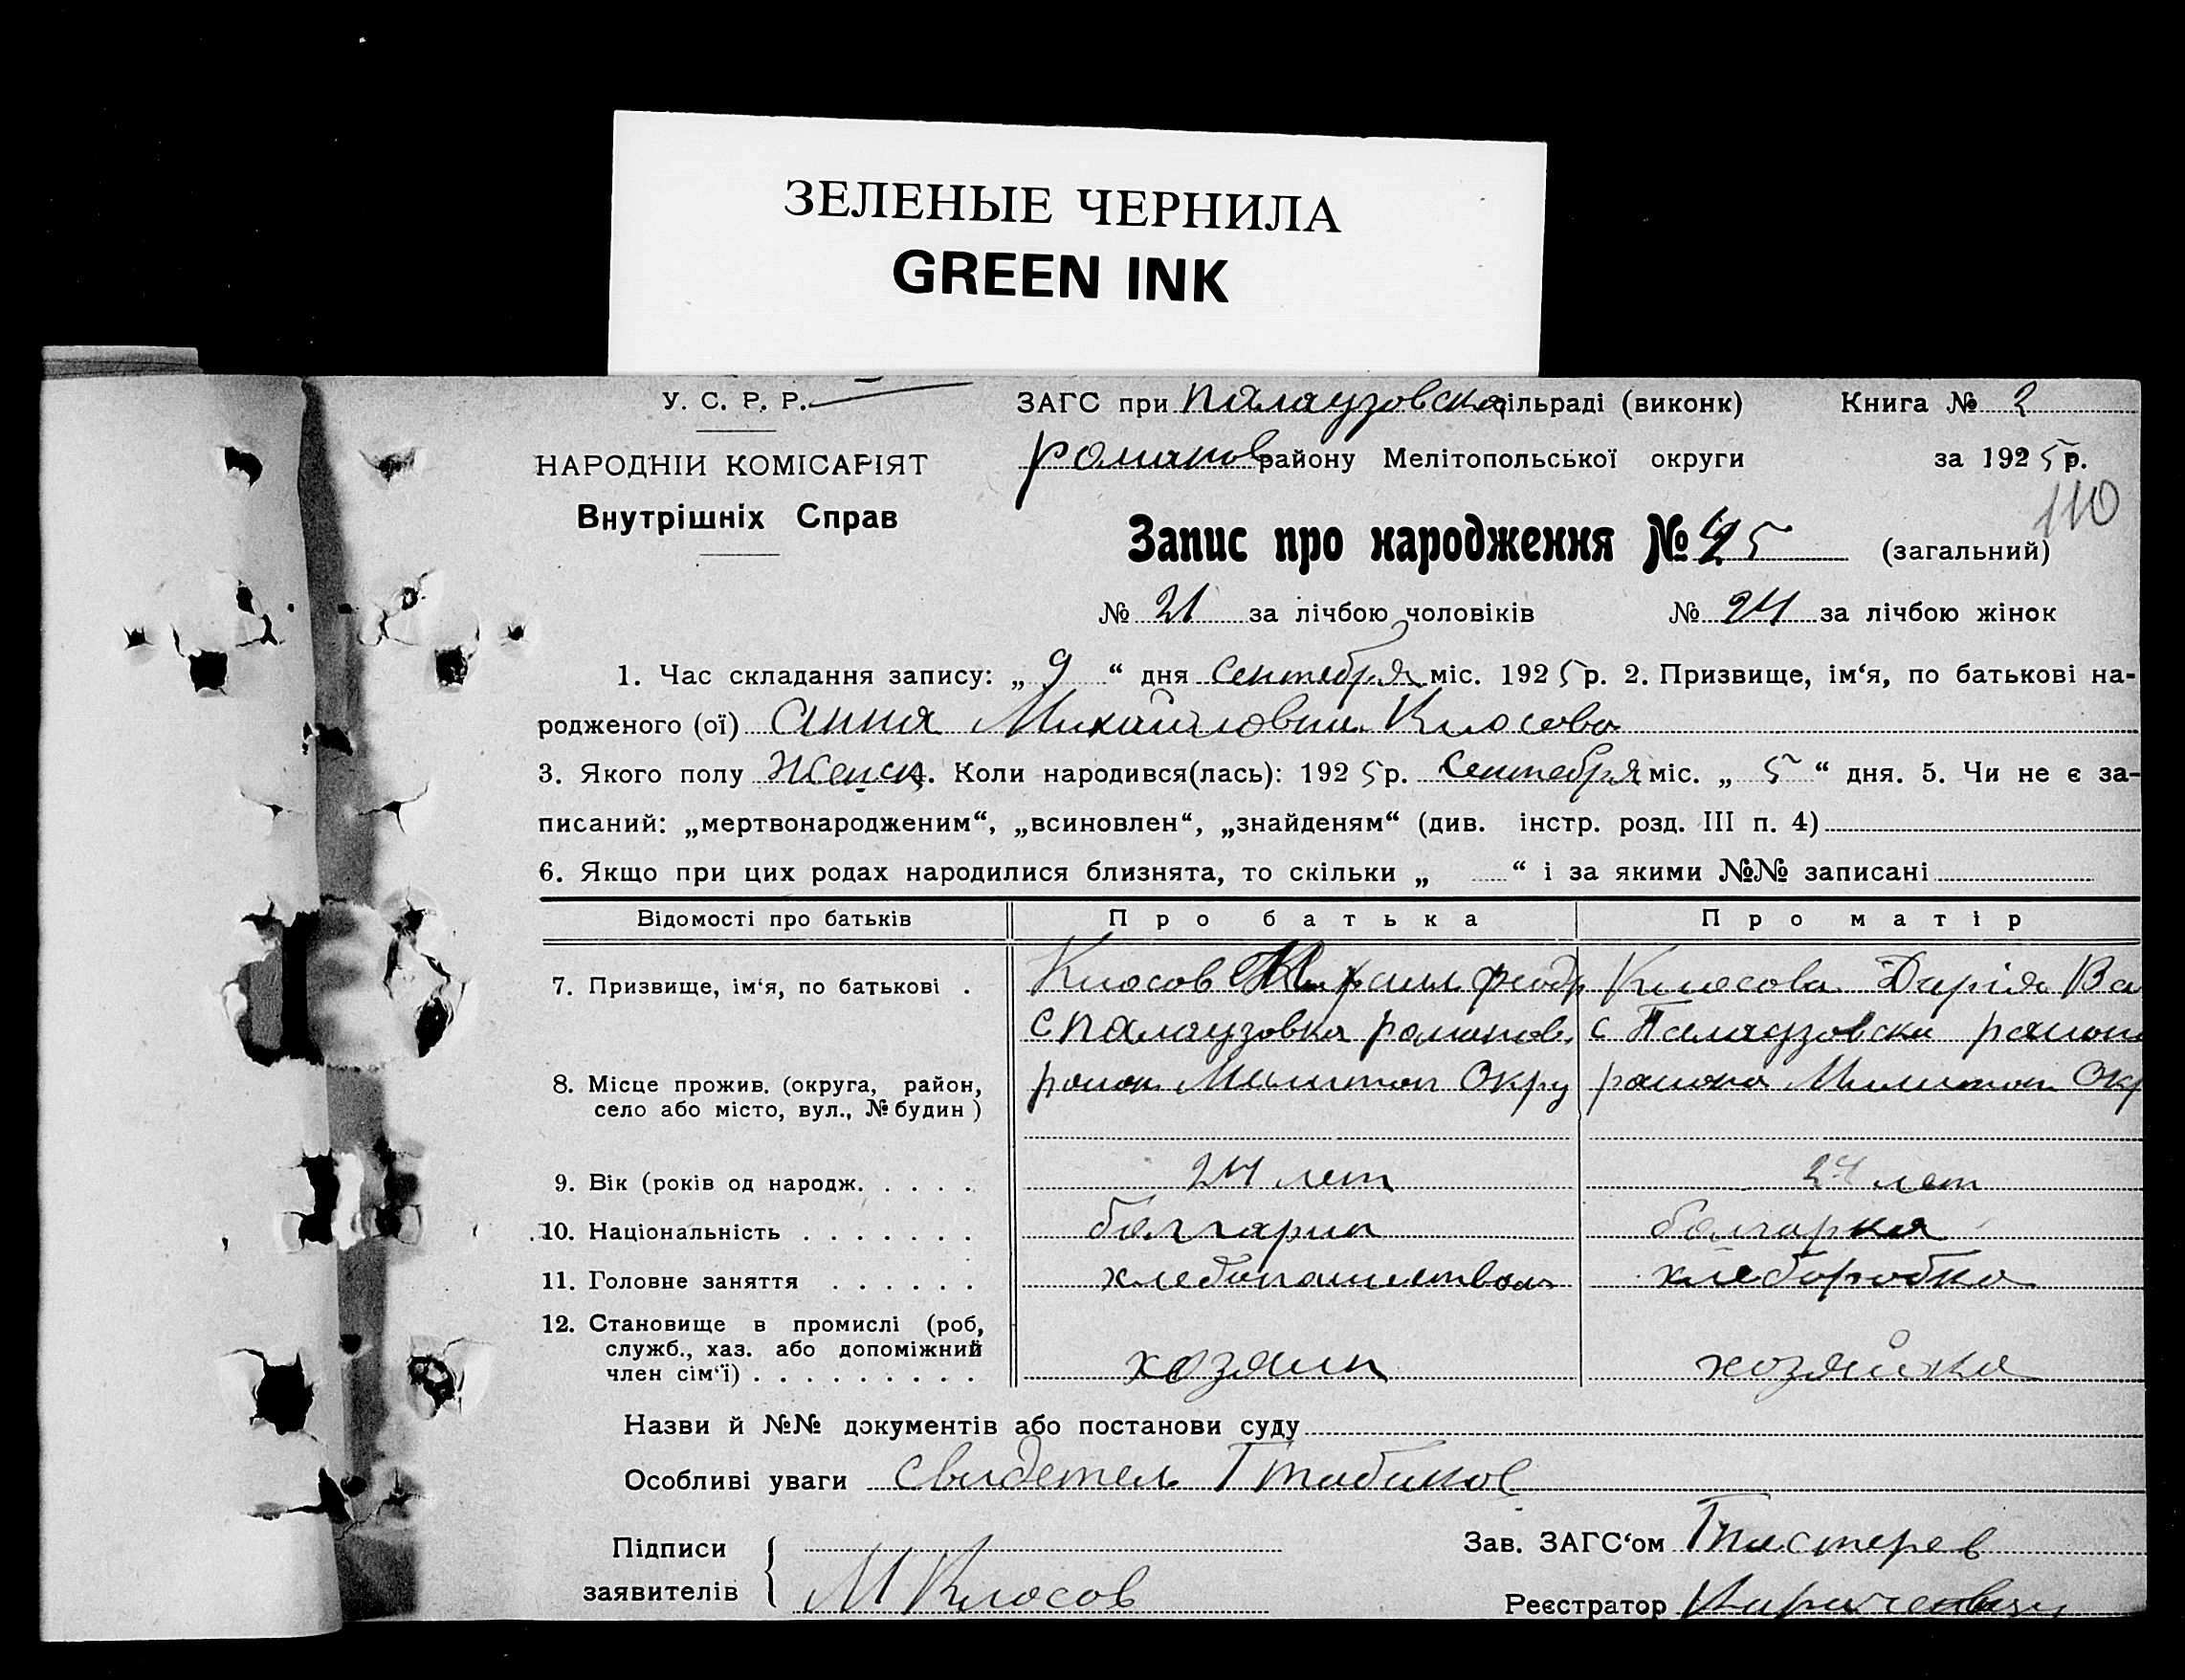 ЗЕЛЕНЫЕ ЧЕРНИЛА
GREEN INK
У. С. Р. Р. ЗАГС при Палаузовска сільраді (виконк) Книга № 2
НАРОДНІИ КОМІСАРІЯТ романов району Мелітопольської округи за 1925 р.
110
Внутрішніх Справ
Запис про народження № 45 (загальний)
№ 21 за лічбою чоловіків № 24 за лічбою жінок
1. Час складання запису: „ 9 “ дня Сентебря міс. 1925 р. 2. Призвище, ім‘я, по батькові на-
родженого (ої) Анна Михайловна Кносова
3. Якого полу Женск 4. Коли народився(лась): 1925 р. Сентебря міс. „ 5 “ дня. 5. Чи не є за-
писаний: „мертвонародженим“, „всиновлен“, „знайденям“ (див. інстр. розд. III п. 4)
6. Якщо при цих родах народилися близнята, то скільки „ “ і за якими №№ записані
Відомості про батьків Про батька Про матір
7. Призвище, ім‘я, по батькові . Кносов Михаил феодр Кносова Дарія Ва
с Палаузовка романов. с Палаузовски
8. Місце прожив. (округа, район, район Мелитоп Окру района Мелитоп Окр
село або місто, вул., № будин )
9. Вік (років од народж. . . . . 24 лет 24 лет
10. Національність . . . . . . . болгарин болгарка
11. Головне заняття . . . . . . хлебопашество хлеборобка
12. Становище в промислі (роб,
служб., хаз. або допоміжний
член сім‘ї) . . . . . . . . . хозяин хозяйка
Назви й №№ документів або постанови суду
Особливі уваги свидетель
Підписи Зав. ЗАГС‘ом
заявителів М Кносов
Реєстратор